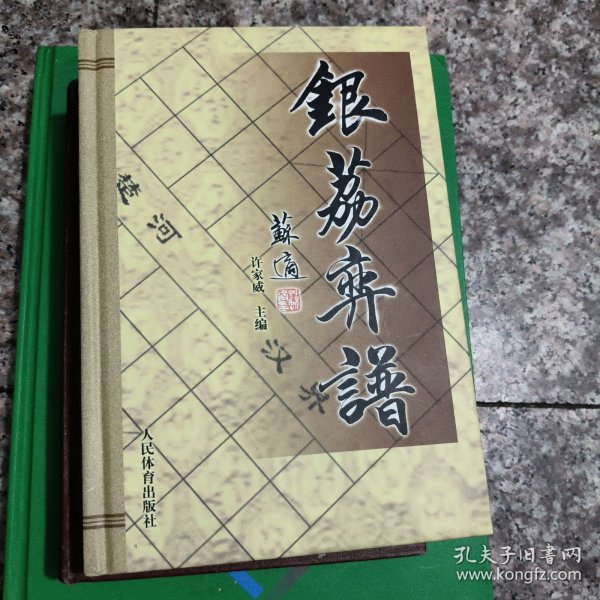 銀荔弈譜
蘇適
许家威 主编
楚河
汉界
人民体育出版社
孔夫子旧书网
www.kongfz.com